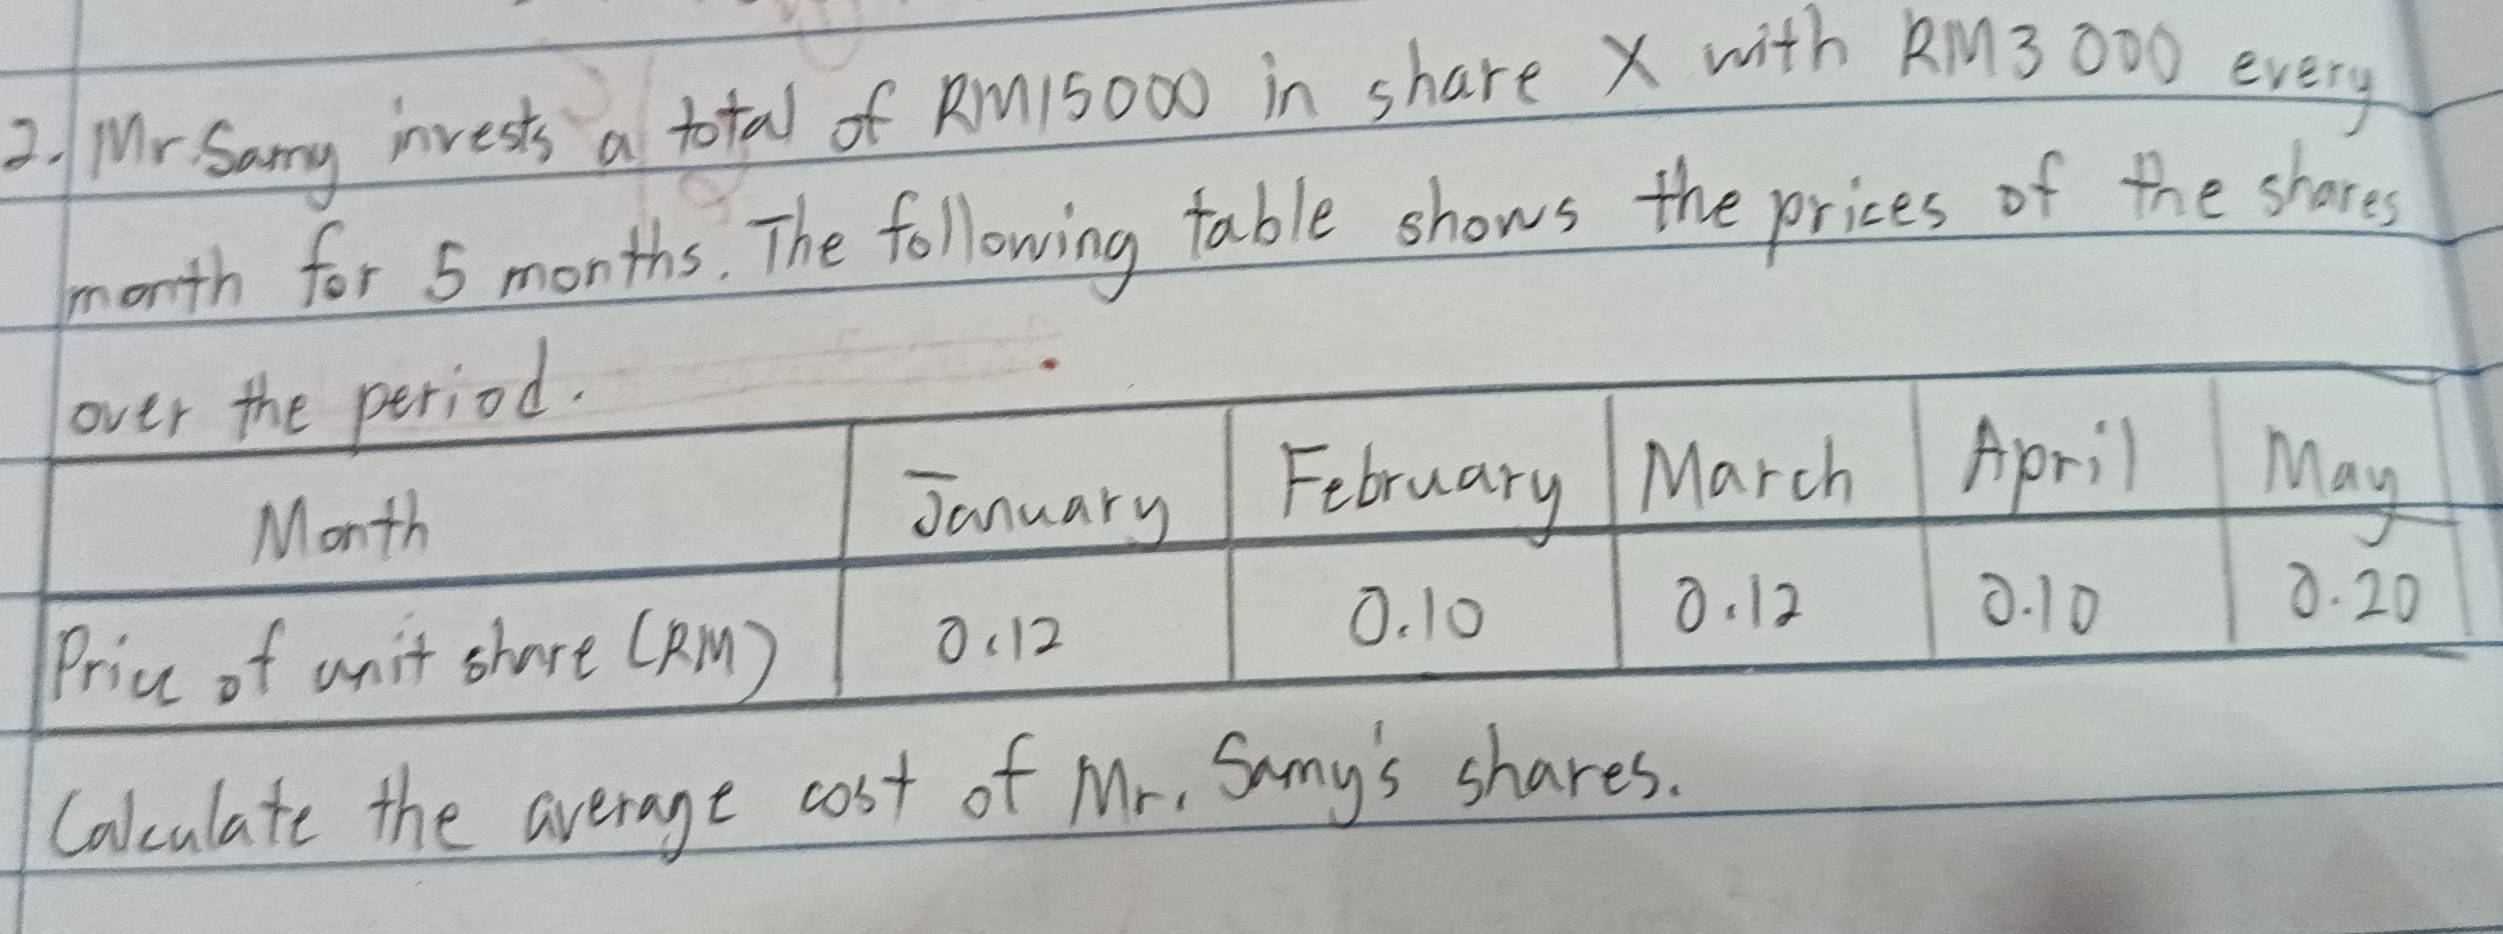 2. Mr. Samy invests a total of RM15000 in share X with RM3 000 every
month for 5 months. The following table shows the prices of the shares
over the period.
Month January February March April May
Price of unit share (RM) 0.12 0.10 0.12 0.10 0.20
Calculate the average cost of Mr. Samy's shares.